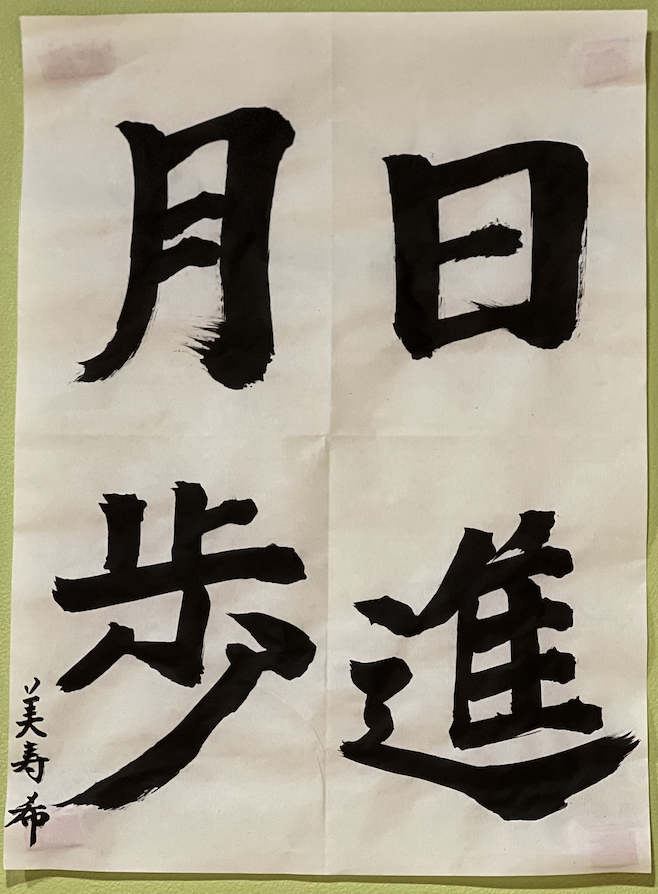 日進
月歩
美寿希